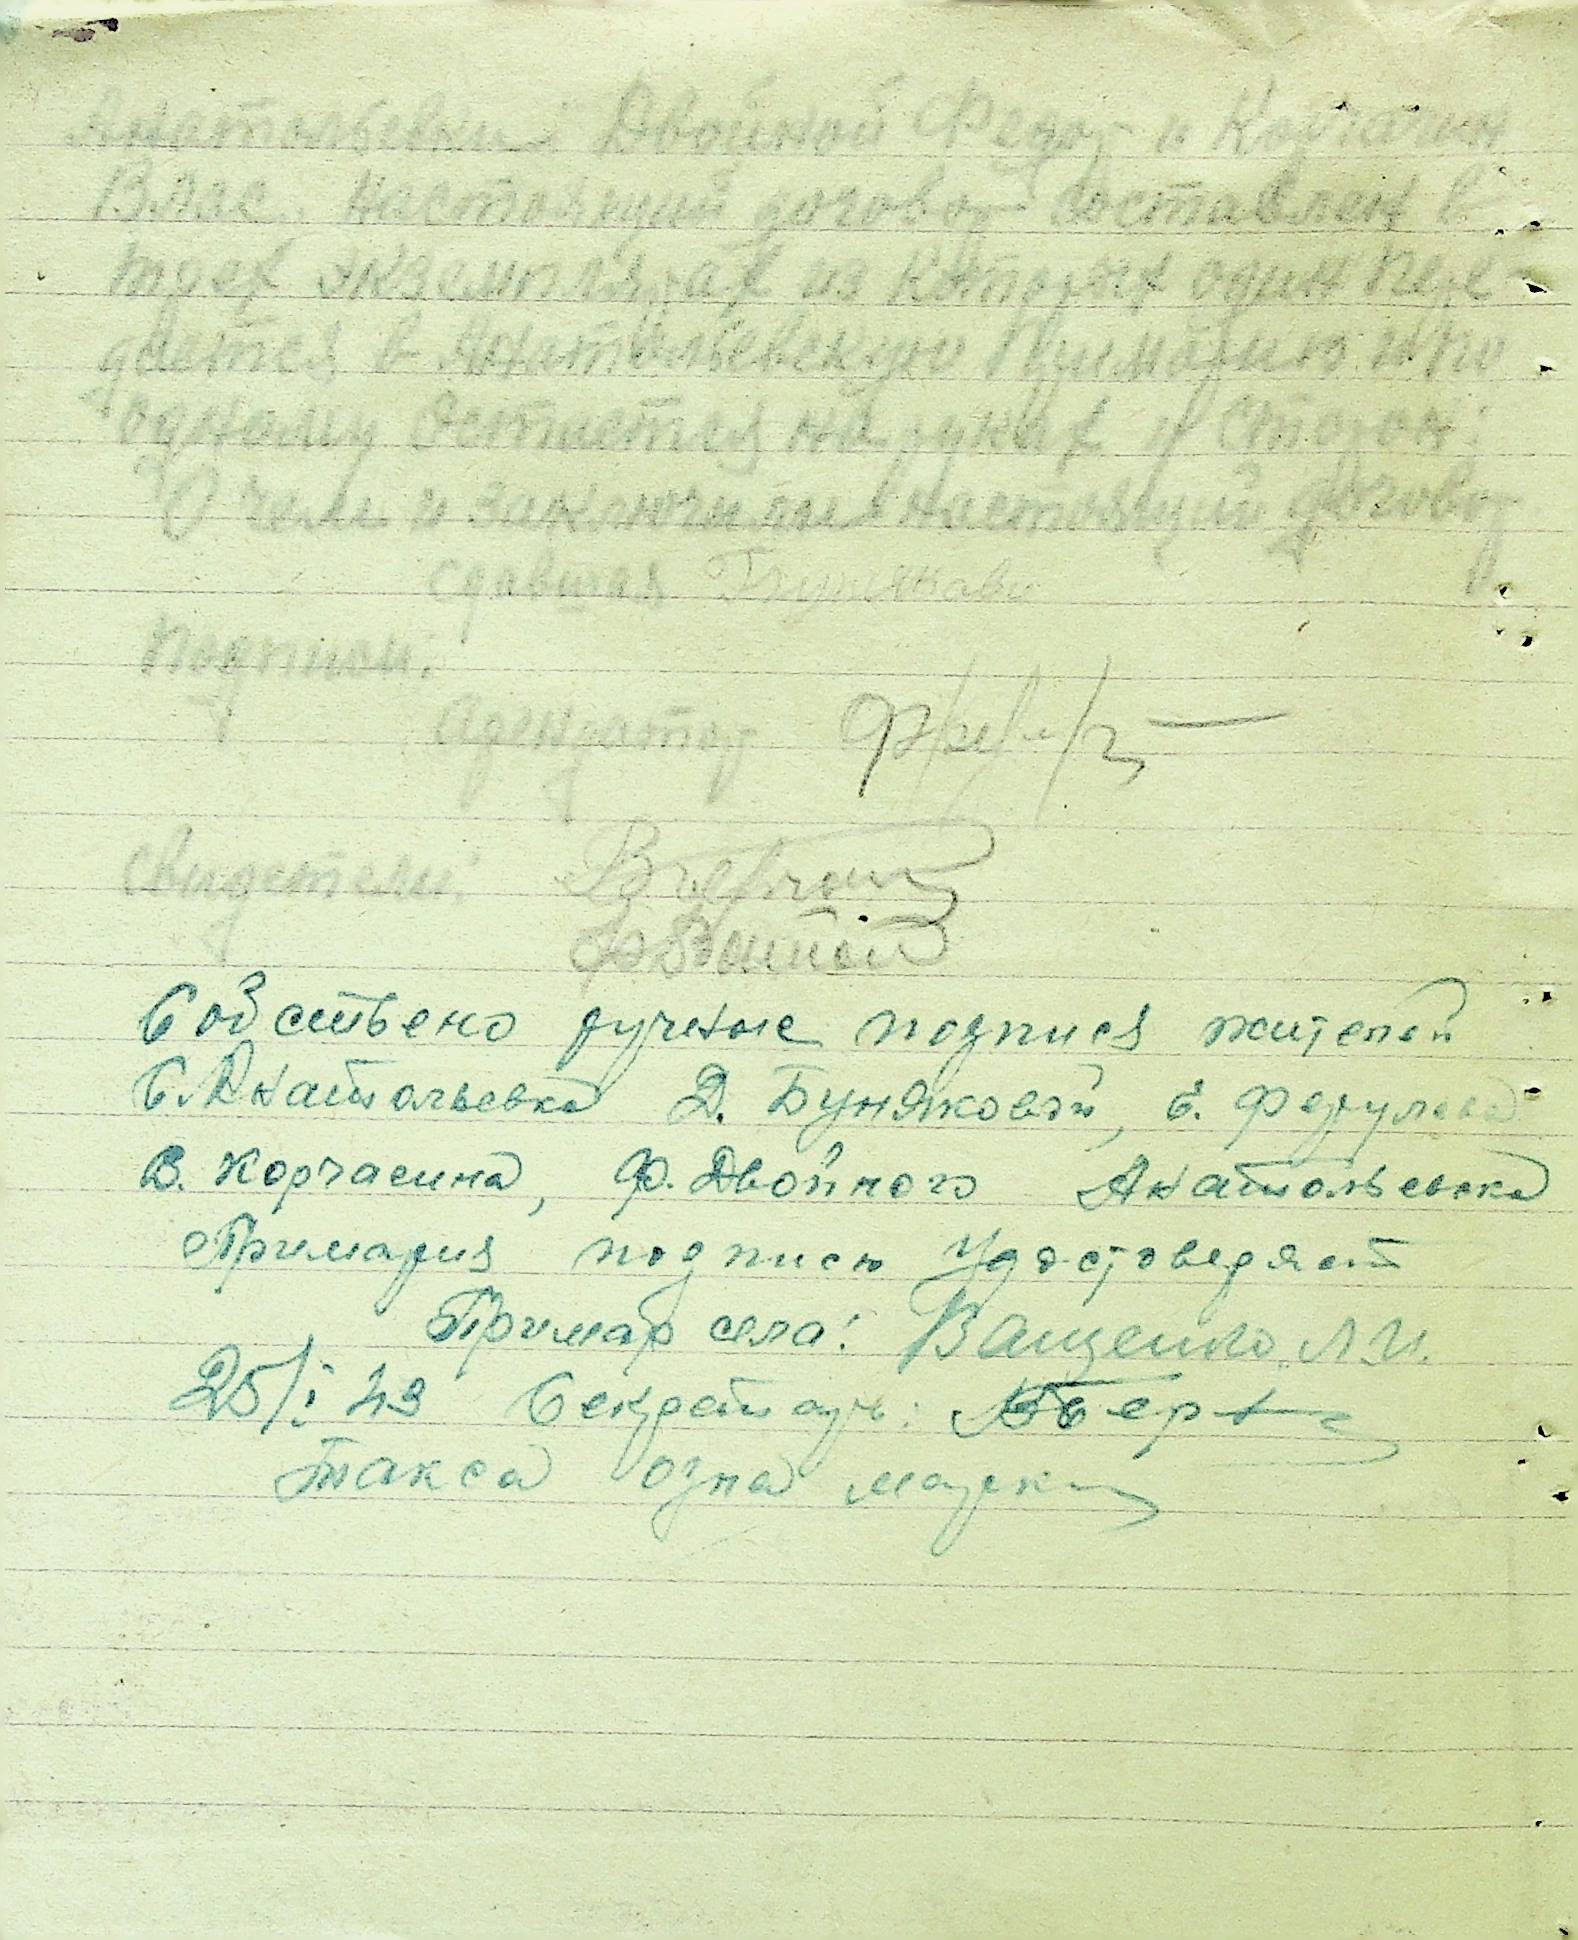 Анатольевки: Двойной Федор и Корчагин
Влас. Настоящий договор составлен в
трех экземплярах из которых один пере-
дается в Анатольевскую Примарию и по
одному остается на руках у сторон:
О чем и заключили настоящий договор
сдавшая Бунякова
Подписи:
Арендатор
Свидетели:
Ф Двойной
Собствено ручные подпися жителей
С. Анатольевка Д. Буняковой, Е. Федулова
В. Корчагина, Ф. Двойного Анатольевска
Примария подписю удостоверяет
Примар села: Ващенко Л.И.
25/I 43 Секретарь:
Такса одна марка